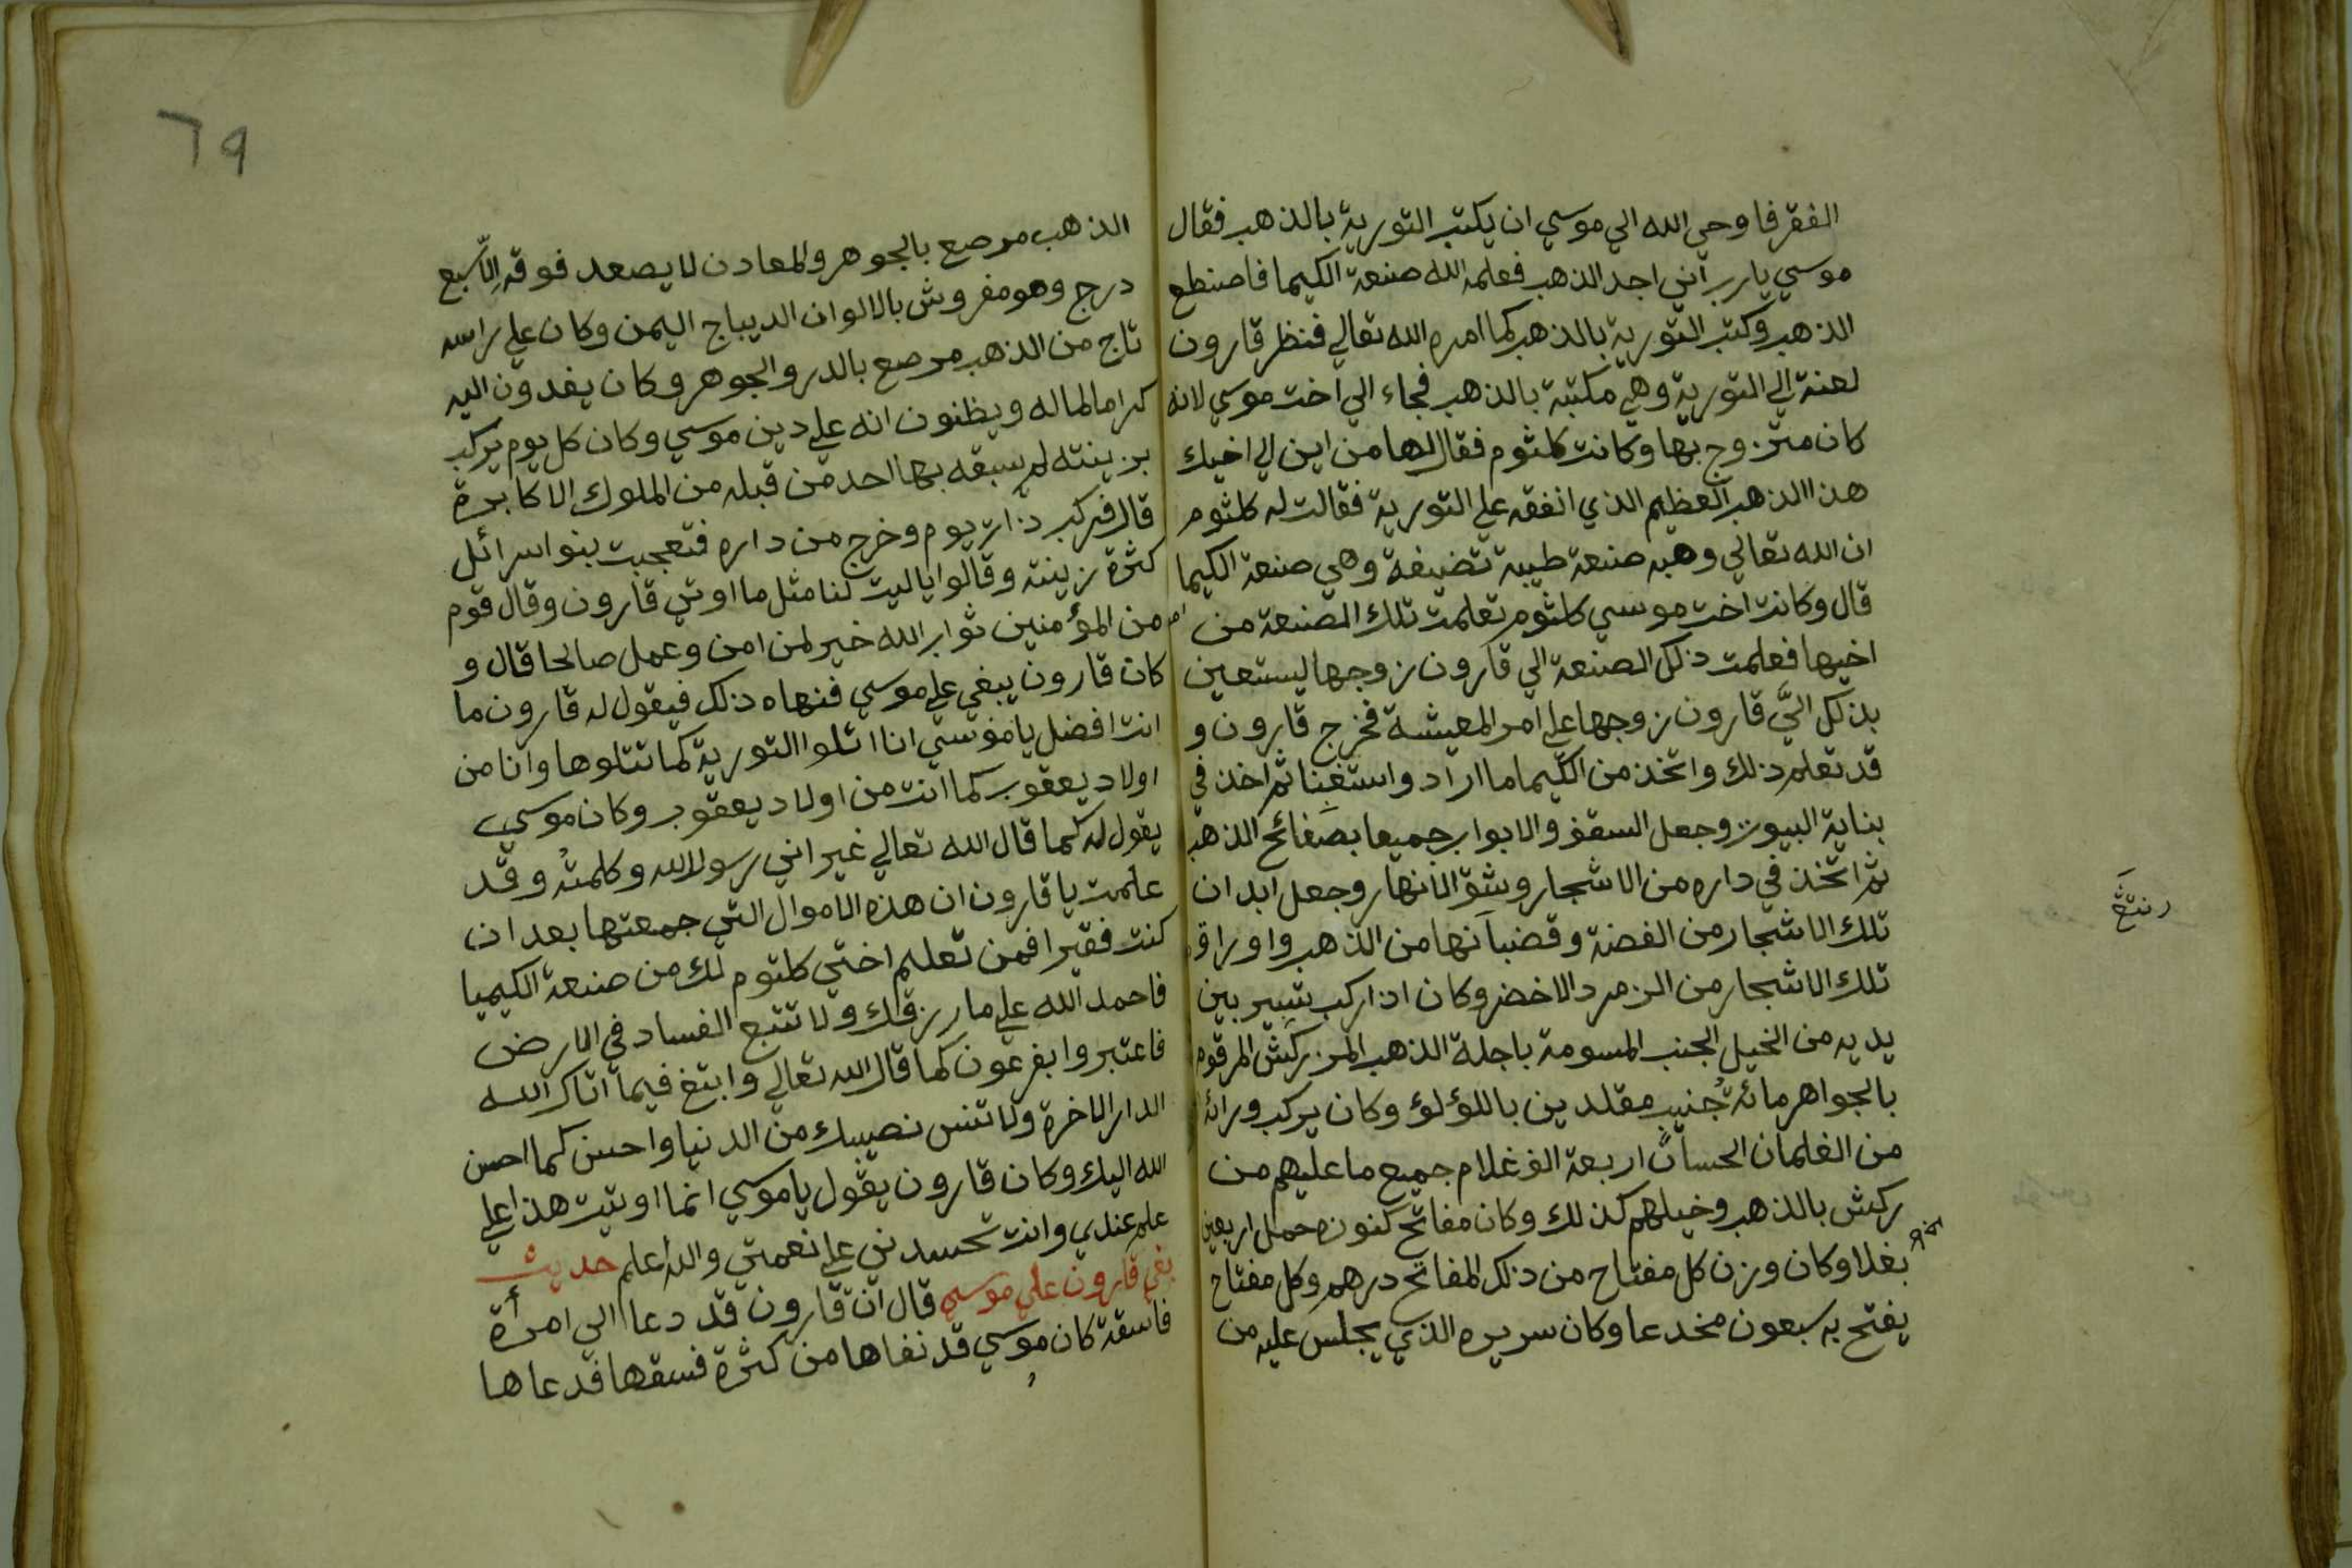 الفقر فاوحي الله الي موسي ان يكتب التورية بالذهب فقال
موسي يارب اني اجد الذهب فعلمه الله صنعة الكيما فاصنطع
الذهب وكتب التورية بالذهب كما امره الله تعالي فنظر قارون
لعنة الي التورية وهي مكتبة بالذهب فجاء الي اخت موسي لانه
كان متزوج بها وكانت كلثوم فقال لها من اين لي اخيك
هذا الذهب العظيم الذي انفقه علي التورية فقالت له كلثوم
ان الله تعالي وهبه صنعة طيبة تضيفة وهي صنعة الكيما
قال وكانت اخت موسي كلثوم تعلمت تلك الصنعة من
اخيها فعلمت ذلك الصنعة الي قارون زوجها ليستعين
بذلك اليَّ قارون زوجها علي امر المعيشة فخرج قارون و
قد تعلم ذلك واتخذ من الكيما ما اراد واستغنا ثم اخذ في
بناية البيوت وجعل السقف والابواب جميعا بصفائح الذهب
ثم اتخذ في داره من الاشجار وشق الانهار وجعل ابدان
تلك الاشجار من الفضة وقضبانها من الذهب واوراق
تلك الاشجار من الزمرد الاخضر وكان اذا ركب يتسير بين
يديه من الخيل الجنب المسومة باجلة الذهب المزركش المرقوم
بالجواهر مائة جُنيب مقلدين باللؤلؤ وكان يركب ورائه
من الغلمان الحسان اربعة الف غلام جميع ما عليهم من
ركش بالذهب وخيلهم كذلك وكان مفاتح كنوزه حمل اربعين
بغلا وكان وزن كل مفتاح من ذلك المفاتح درهم وكل مفتاح
يفتح به سبعون مخدعا وكان سريره الذي يجلس عليه من
٦٩
الذهب مرصع بالجوهر والمعادن لا يصعد فوقه الِاّ سبع
درج وهو مفروش بالالوان الديباج اليمن وكان علي راسه
تاج من الذهب مرصع بالدر والجوهر وكان يفدون اليه
كراما لماله ويظنون انه علي دين موسي وكان كل يوم يركب
بزينته لم يسبقه بها احد من قبله من الملوك الاكابرة
قال فركب ذات يوم وخرج من داره فتعجبت بنو اسرائل
كثرة زينته وقالوا ياليت لنا مثل ما اوتي قارون وقال قوم
من المؤمنين ثواب الله خير لمن امن وعمل صالحا قال و
كان قارون يبغي علي موسي فنهاه ذلك فيقول له قارون ما
انت افضل يا موسي انا اتلوا التورية كما تتلوها وانا من
اولاد يعقوب كما انت من اولاد يعقوب وكان موسي
يقول له كما قال الله تعالي غير اني رسول الله وكلمتُه وقد
علمت يا قارون ان هذه الاموال التي جمعتها بعد ان
كنت فقيرا فمن تعليم اختي كلثوم لك من صنعة الكيميا
فاحمد الله علي ما رزقك ولا تتبع الفساد في الارض
فاعتبروا بفرعون كما قال الله تعالي وابتغ فيما اتاك الله
الدار الاخرة ولا تنس نصيبك من الدنيا واحسن كما احسن
الله اليك وكان قارون يقول يا موسي انما اوتيت هذا علي
علم عندي وانت تحسدني علي نعمتي والله اعلم حديث
بغي قارون علي موسي قال ان قارون قد دعا الي امرأة
فاسقة كان موسي قد نفاها من كثرة فسقها فدعاها